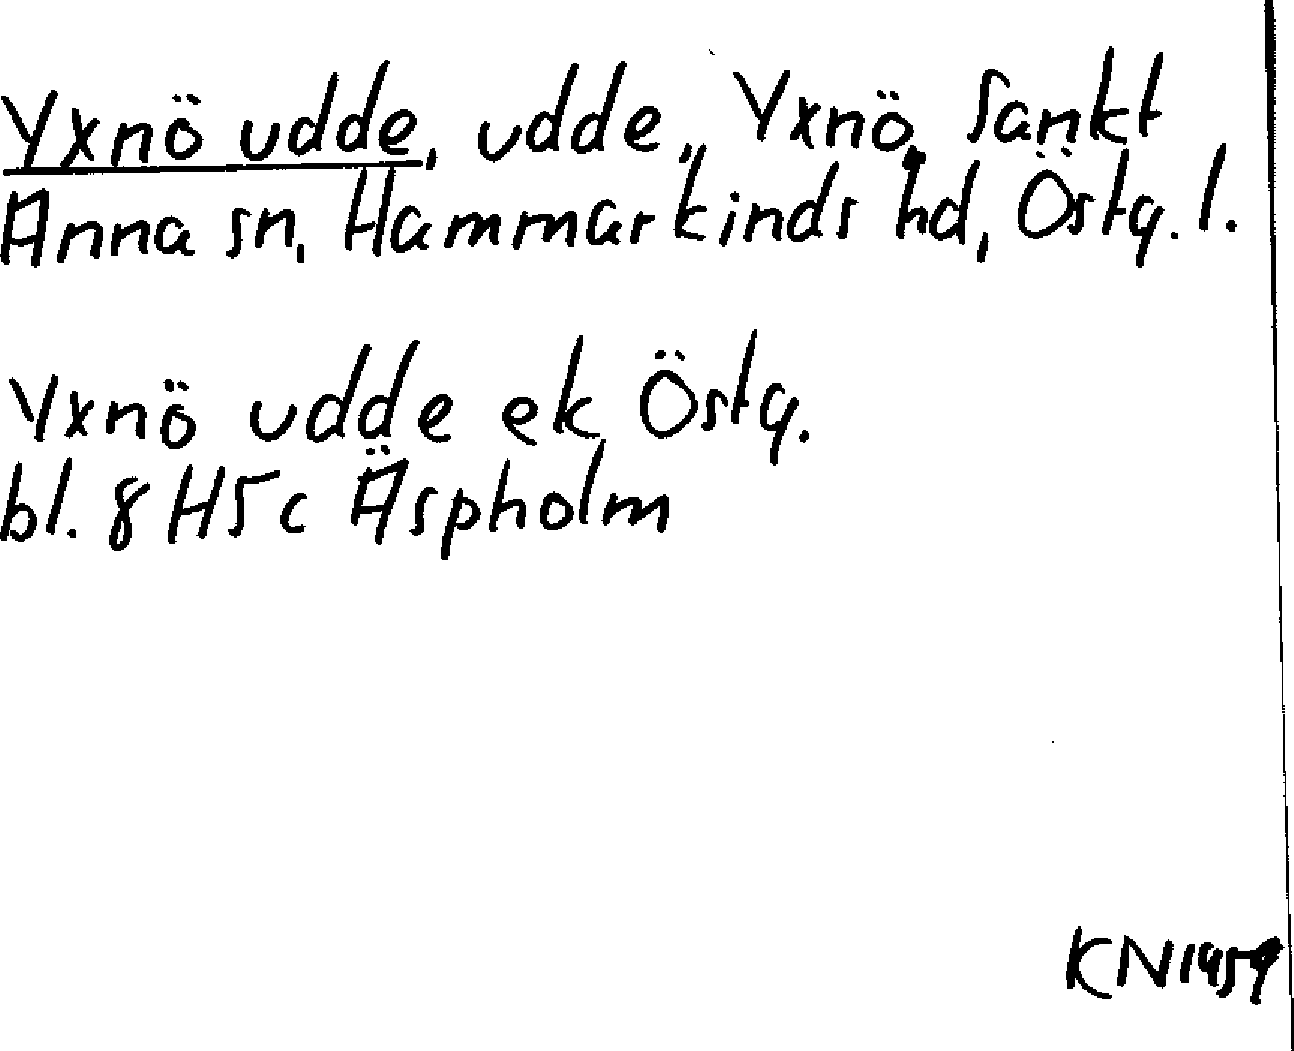 Yxnö udde, udde, Yxnö, Sankt
Anna sn, Hammarkinds hd, Östg. l.
Yxnö udde ek Östg.
bl. 8 H5c Äspholm
KN1959